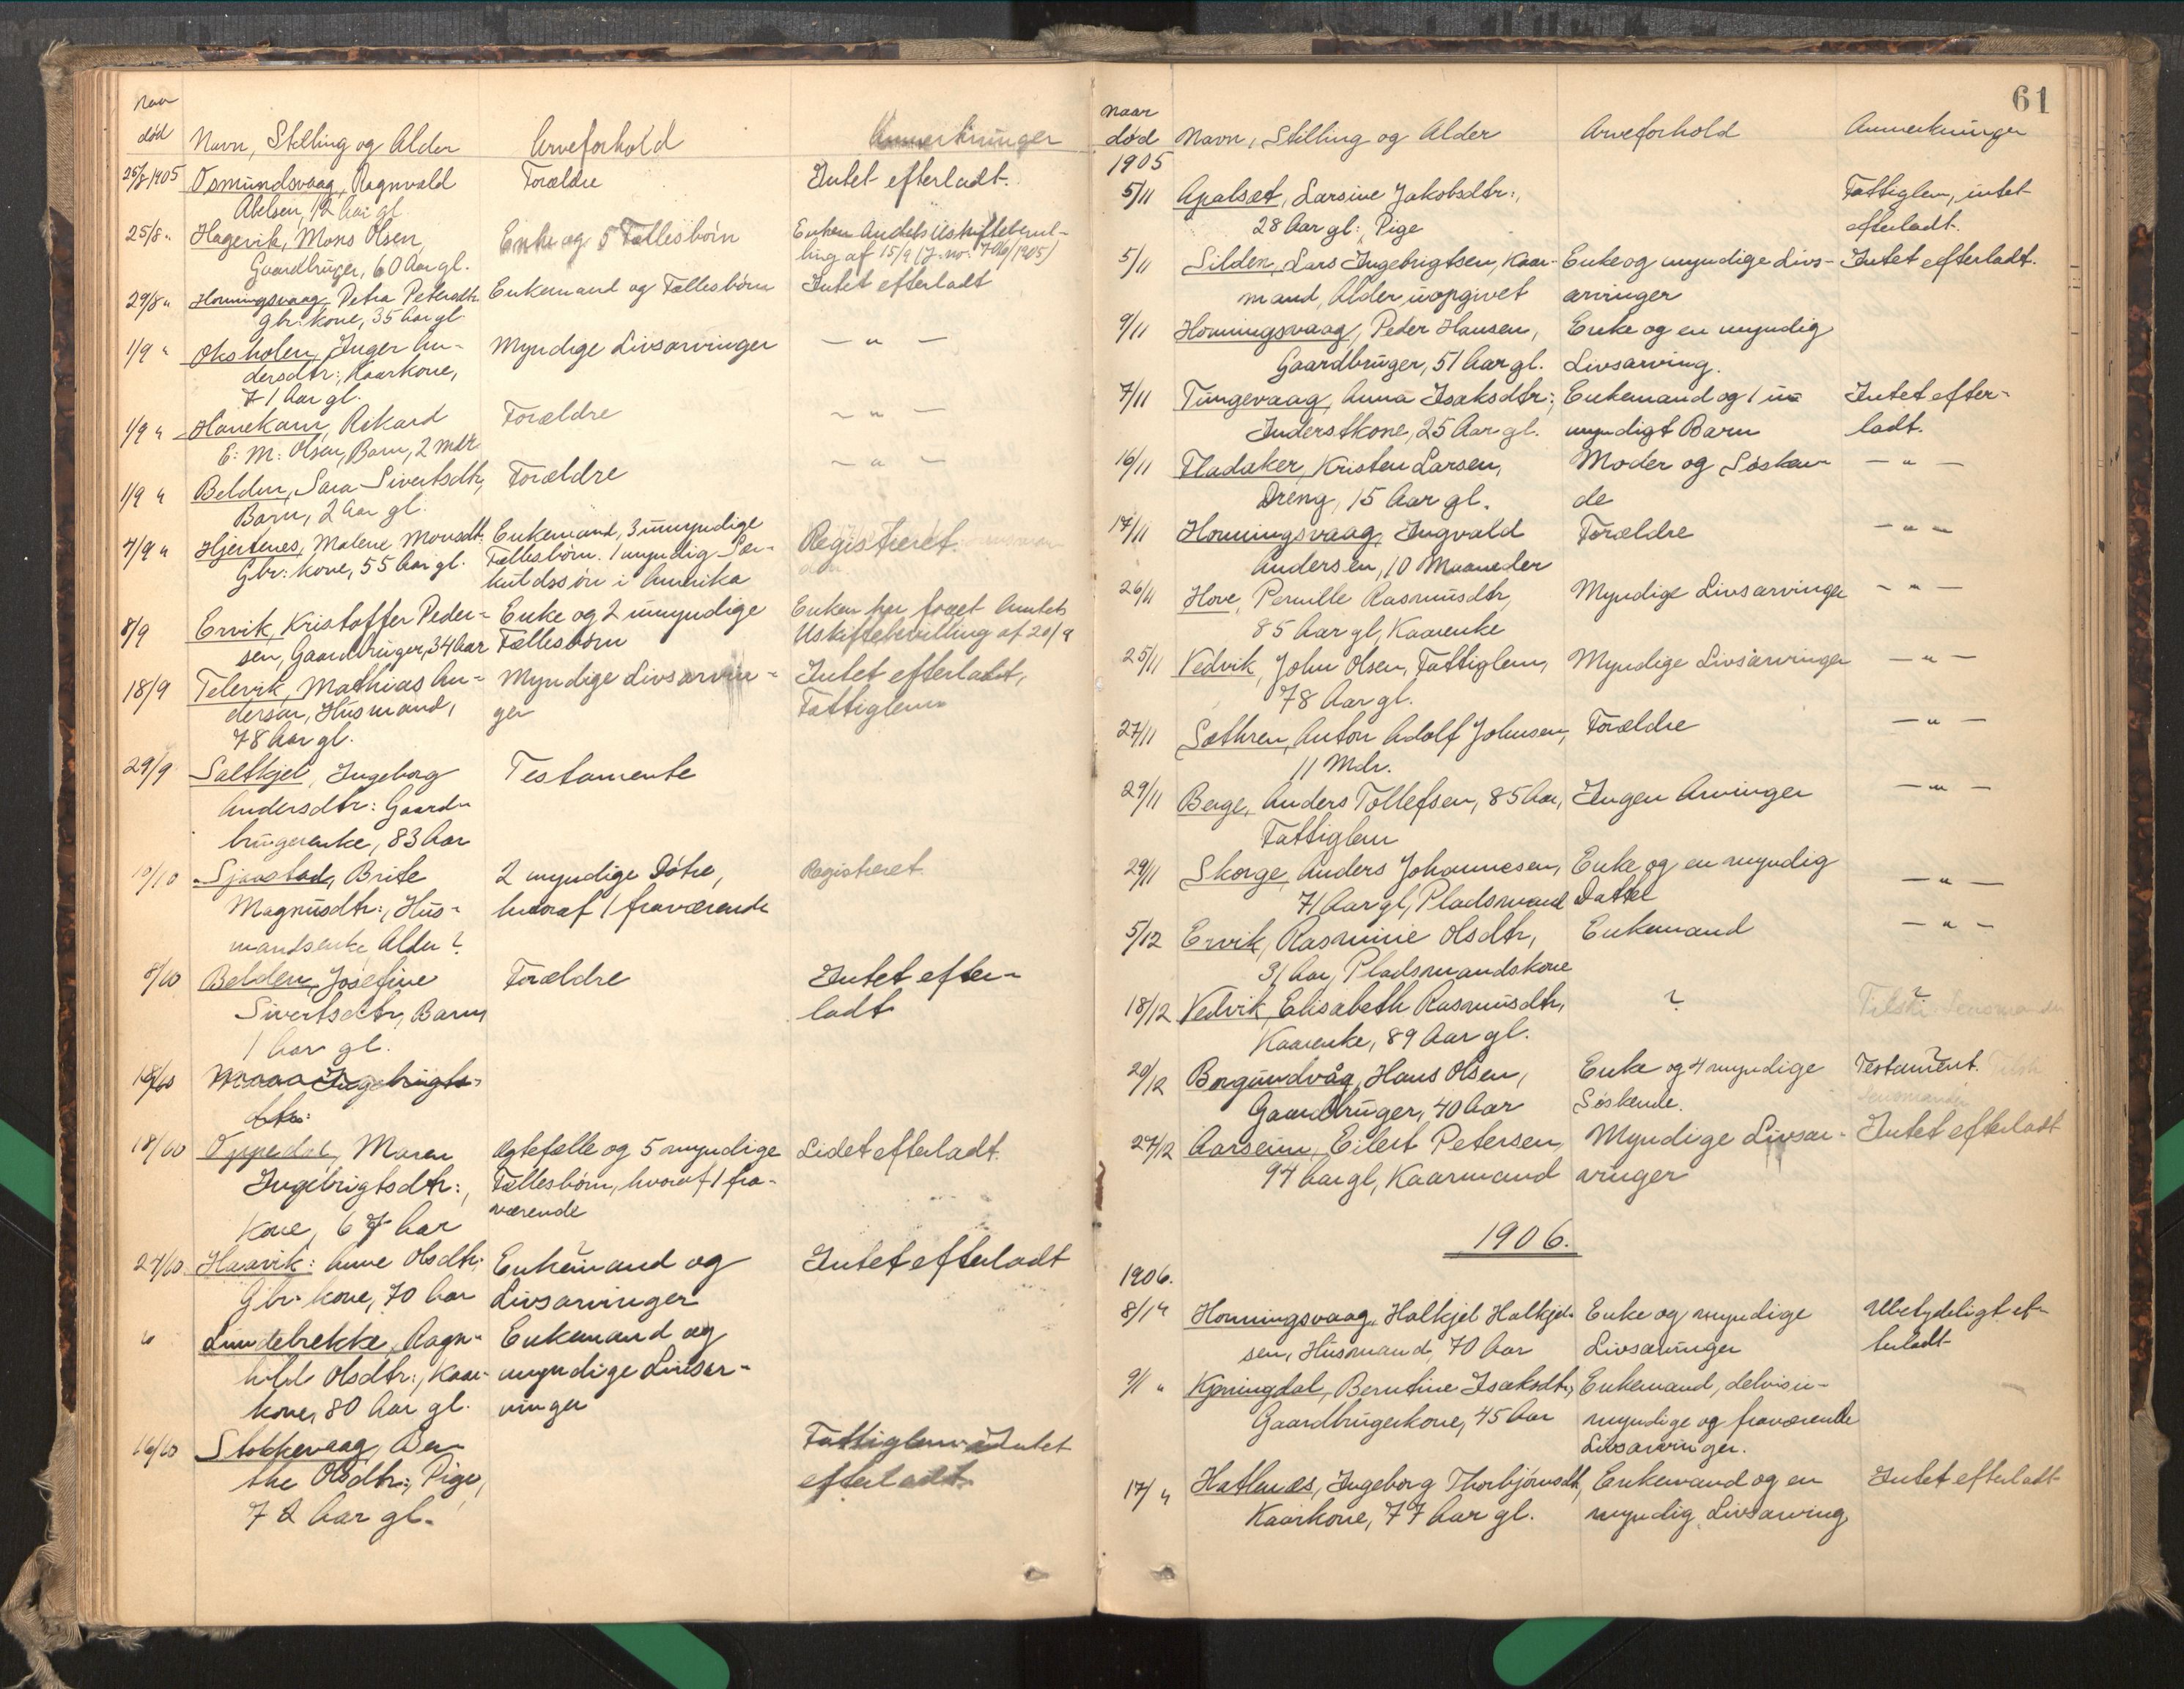 Naar
død Navn, Stilling og Alder Arveforhold Anmerkninger
25/8 1905 Osmundsvaag, Ragnvald Forældre Intet efterladt.
Abelsen, 12 Aar gl.
25/8 " Hagevik, Mons Olsen, Enke og 5 Fællesbörn Enken Amtets Uskiftebevil-
Gaardbruger, 60 Aar gl. ling af 15/9 (J. no. 706/1905)
29/8 " Honningsvaag, Petra Petersdtr. Enkemand og Fællesbörn Intet efterladt
gbr. kone, 35 Aar gl.
1/9 " Oksholen, Inger An- Myndige Livsarvinger — " —
dersdtr:, Kaarkone,
71 Aar gl.
1/9 " Hanekam, Rikard Forældre — " —
E. M. Olsen, Barn, 2 Mdr
1/9 " Belden, Sara Sivertsdtr, Forældre — " —
Barn, 2 Aar gl.
7/9 " Hjertenes, Malene Monsdt. Enkemand, 3 umyndige Registreret.
Gbr: kone, 55 Aar gl. Fællesbörn. 1 myndig Sær-
kuldssön i Amerika
8/9 Ervik, Kristoffer Peder- Enke og 2 umyndige Enken har faaet Amtets
sen, Gaardbruger, 34 Aar Fællesbörn Uskiftebevilling af 20/9
18/9 Televik, Mathias An- Myndige Livsarvin- Intet efterladt,
dersen, Husmand, ger Fattiglem
78 Aar gl.
29/9 Saltkjel, Ingeborg Testamente
Andersdtr: Gaard-
brugerenke, 83 Aar
10/10 Sjaastad, Brite 2 myndige Döttre, Registreret.
Magnusdtr:, Hus- hvoraf 1 fraværende
mandsenke, Alder?
8/10 Belden, Josefine Forældre Intet efter-
Sivertsdtr, Barn ladt
1 Aar gl.
18/10 Ingebrigts-
dtr:
18/10 Oppedal, Maren Ægtefælle og 5 myndige Lidet efterladt.
Ingebrigtsdtr:, Fællesbörn, hvoraf 1 fra-
Kone, 67 Aar værende
24/10 Haavik: Anne Olsdtr: Enkemand og Intet efterladt
Gbr. kone, 70 Aar Livsarvinger
" Lundebrekke, Ragn- Enkemand og
hild Olsdtr:, Kaar- myndige Livsar-
kone, 80 Aar gl. vinger
16/10 Stokkevaag, Ber- Fattiglem Intet
the Olsdtr:, Pige, efterladt.
72 Aar gl.
61
Naar
død Navn, Stilling og Alder Arveforhold Anmerkninger
1905
5/11 Apalset, Larsine Jakobsdtr:, Fattiglem, intet
28 Aar gl:, Pige efterladt.
5/11 Silden, Lars Ingebrigtsen, Kaar- Enke og myndige Livs- Intet efterladt.
mand, Alder uopgivet arvinger
9/11 Honningsvaag, Peder Hansen, Enke og en myndig
Gaardbruger, 51 Aar gl. Livsarving.
7/11 Tungevaag, Anna Isaksdtr:, Enkemand og 1 u- Intet efter-
Inderstkone, 25 Aar gl. myndigt Barn ladt.
16/11 Fladaker, Kristen Larsen, Moder og Sösken- — " —
Dreng, 15 Aar gl. de
17/11 Honningsvaag, Ingvald Forældre — " —
Andersen, 10 Maaneder
26/11 Hove, Pernille Rasmusdtr, Myndige Livsarvinger — " —
85 Aar gl, Kaarenke
25/11 Vedvik, John Olsen, Fattiglem, Myndige Livsarvinger — " —
78 Aar gl.
27/11 Sæthren, Anton Adolf Johnsen, Forældre — " —
11 Mdr.
29/11 Berge, Anders Tollefsen, 85 Aar, Ingen Arvinger — " —
Fattiglem
29/11 Skorge, Anders Johannesen, Enke og en myndig — " —
71 Aar gl, Pladsmand Datter
5/12 Ervik, Rasmine Olsdtr, Enkemand — " —
31 Aar, Pladsmandskone
18/12 Vedvik, Elisabeth Rasmusdtr, ? ?
Kaarenke, 89 Aar gl.
20/12 Borgundvåg, Hans Olsen, Enke og 4 myndige Testament.
Gaardbruger, 40 Aar Söskende.
27/12 Aarseim, Eilert Petersen, Myndige Livsar- Intet efterladt
94 Aar gl, Kaarmand vinger
1906.
1906.
8/1 " Honningsvaag, Halkjel Halkjel- Enke og myndige Ubetydeligt ef-
sen, Husmand, 70 Aar Livsarvinger terladt
9/1 " Kjøringdal, Berntine Isaksdtr, Enkemand, delvis u-
Gaardbrugerkone, 45 Aar myndige og fraværende
Livsarvinger.
17/ " Hatlenæs, Ingeborg Thorbjörnsdtr, Enkemand og en Intet efterladt
Kaarkone, 77 Aar gl. myndig Livsarving